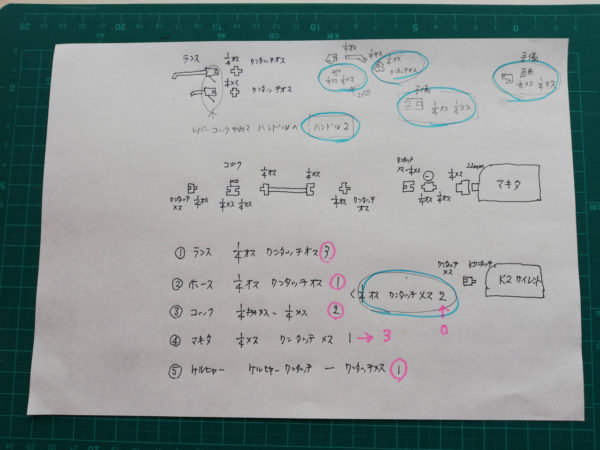 ランス 1/4オス ワンタッチオス
1/4メス ワンタッチオス
レバーコック やめて ハンドルへ ハンドル2
1/4オス
1/4オス
1/4メス
ワンタッチオス
子備
1/4メス 1/4メス
子備
1/4メス 1/4メス
ワンタッチメス 1/4オス
コック
1/4メス 1/4メス
1/4オス
1/4メス
1/4オス ワンタッチオス
ワンタッチメス
1/4オス 1/4オス
1/4メス
22mm
マキタ
① ランス 1/4オス ワンタッチオス 3
② ホース 1/4オス ワンタッチオス 1
③ コック 1/4メス〜1/4メス 2
④ マキタ 1/4メス ワンタッチメス 1 → 3
⑤ ケルヒャー ケルヒャーワンタッチ ー ワンタッチメス 1
1/4オス ワンタッチメス 2
0
ワンタッチメス
Kワンタッチ
K2サイレント